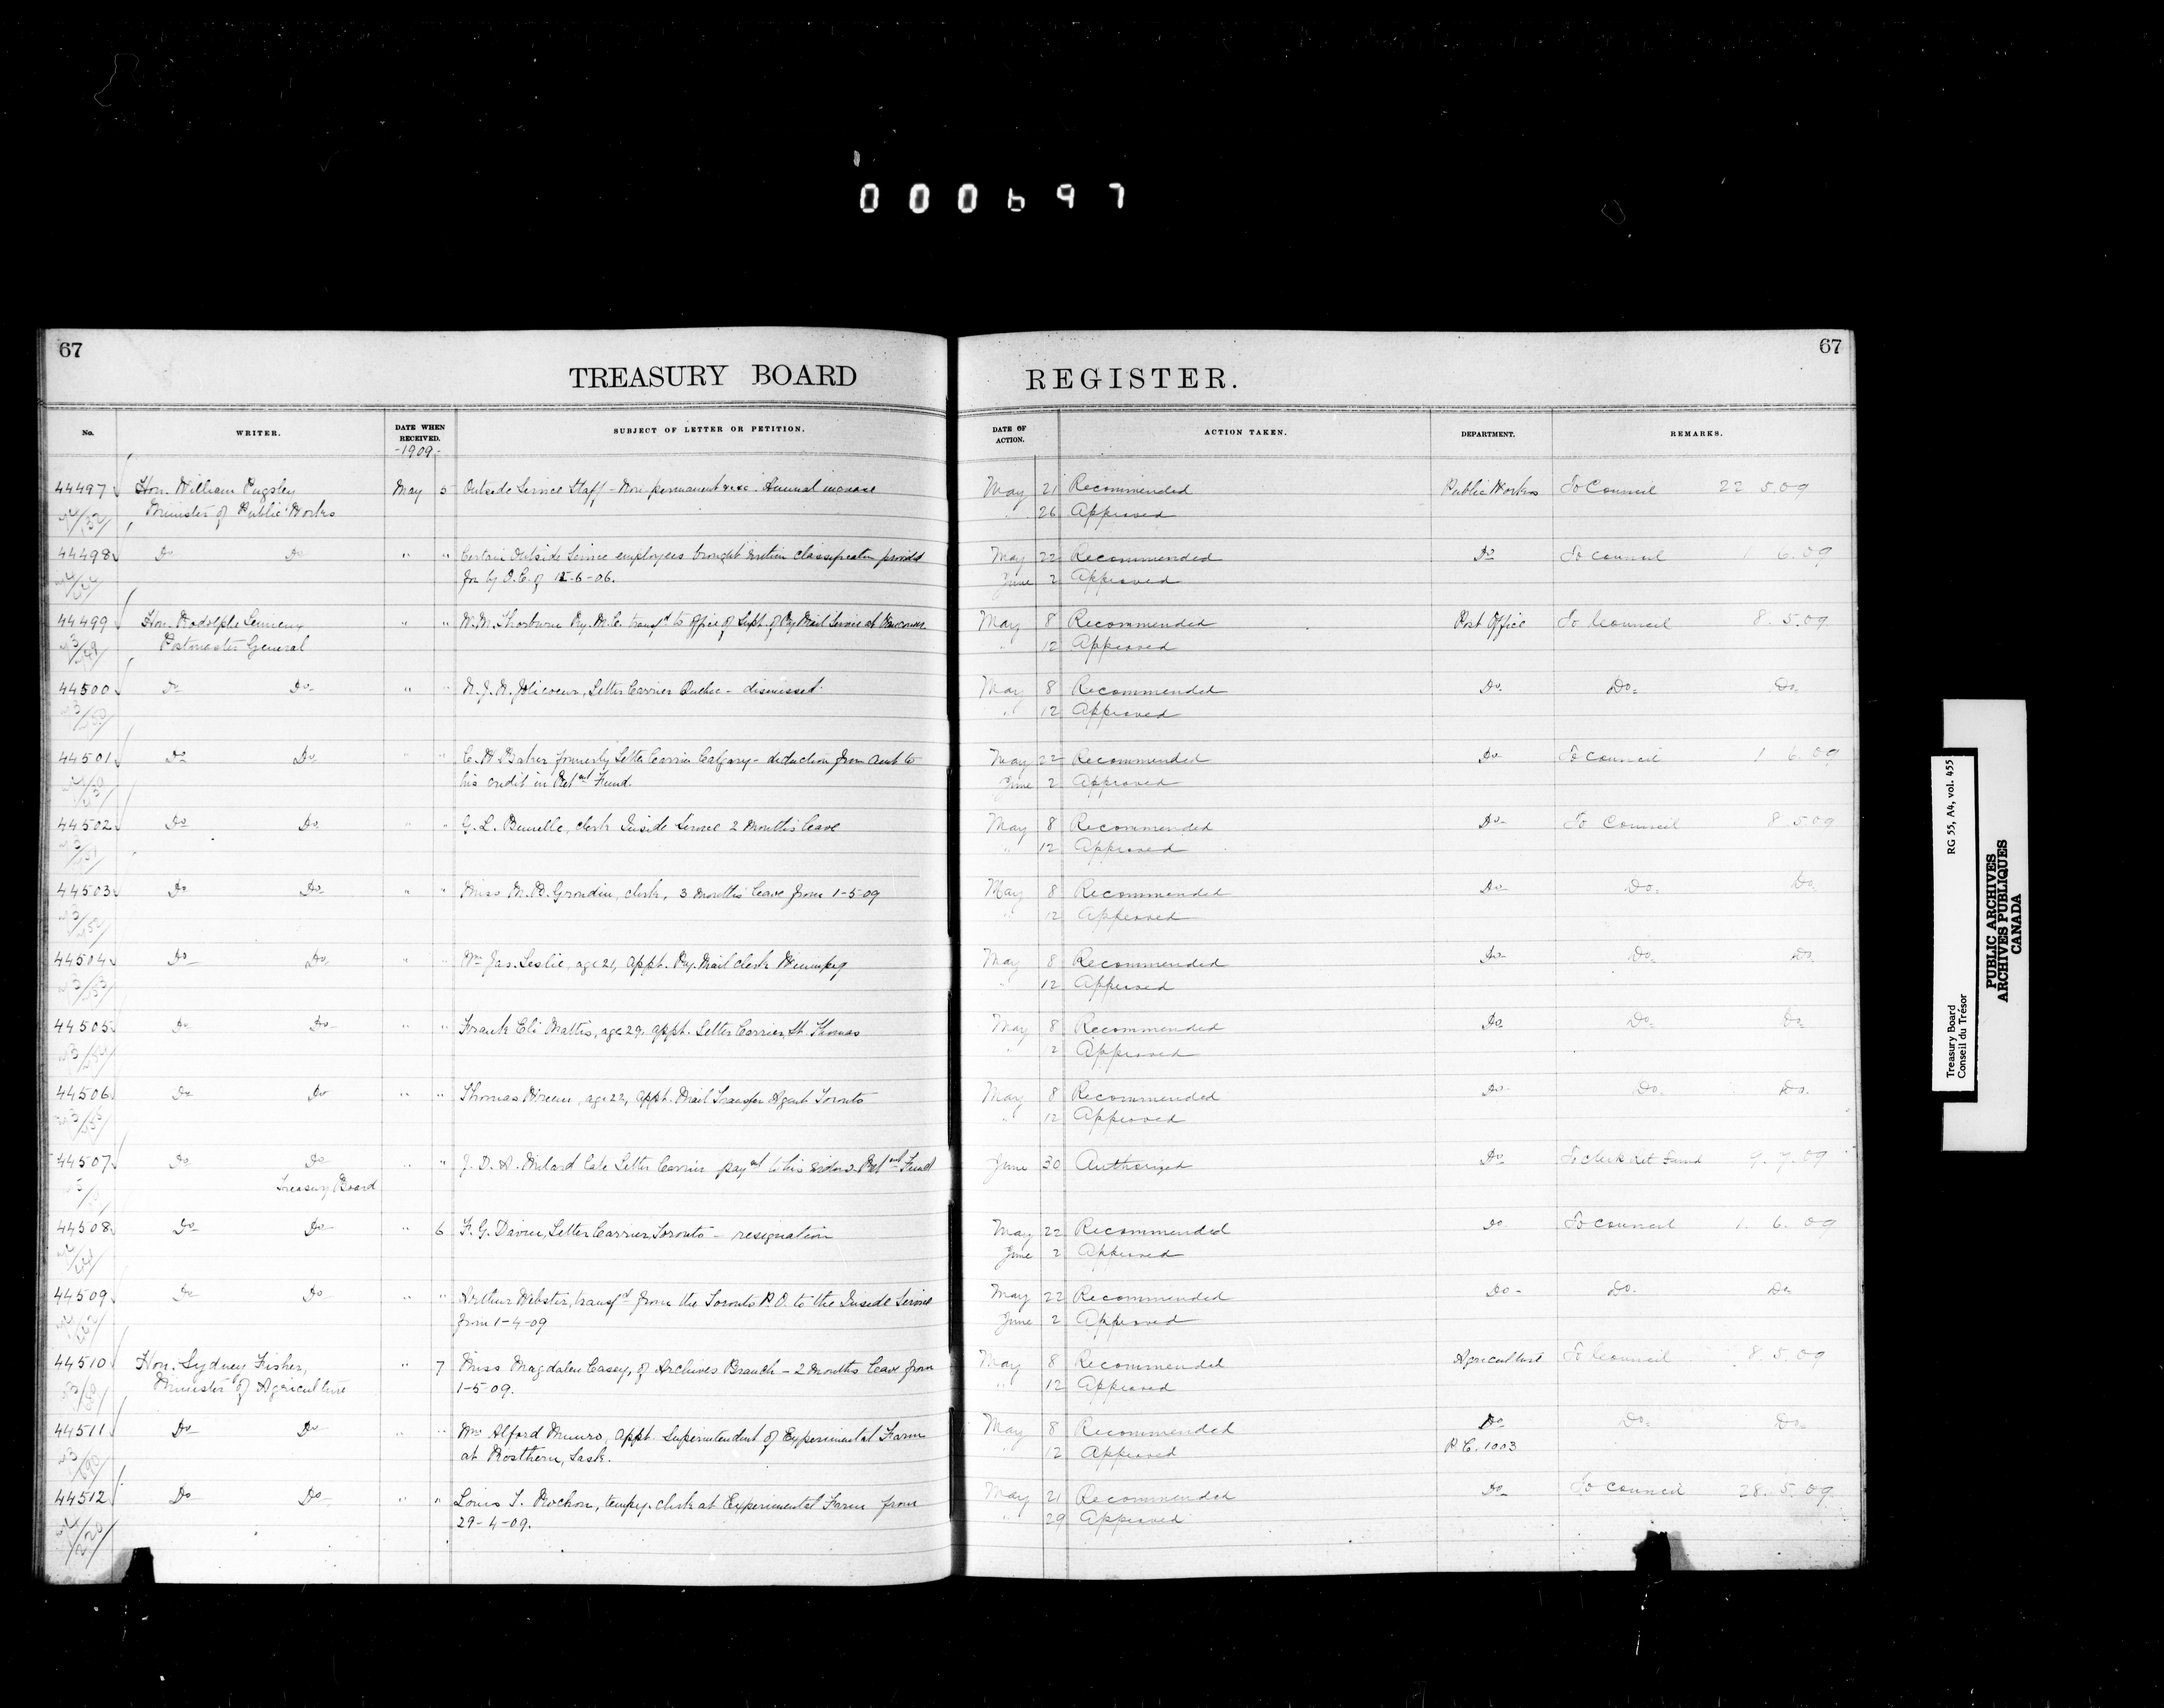 000697
67
67
TREASURY BOARD REGISTER.
No. WRITER. DATE WHEN RECEIVED. SUBJECT OF LETTER OR PETITION. DATE OF ACTION. ACTION TAKEN. DEPARTMENT. REMARKS.
-1909-
44497 Hon. William Pugsley May 5 Outside Service Staff - Non-permanent Annual increase May 21 Recommended Public Works To Council 22 5.09
Minister of Public Works " 26 Approved
44498 Do Do " " Certain Outside Service employees brought within classification provided May 22 Recommended Do To Council 1 6.09
for by O.C. of 15-6-06. June 2 Approved
44499 Hon. Rodolphe Lemieux " " W.M. Thorburn Ry. M.C. transfd to Office of Supt. of Ry Mail Service at Vancouver May 8 Recommended Post Office To Council 8.5.09
Postmaster General " 12 Approved
44500 Do Do " " N.J.N. Jolicoeur, Letter Carrier Quebec - dismissed. May 8 Recommended Do Do. Do.
" 12 Approved
44501 Do Do " " C.H. Baker formerly Letter Carrier Calgary - deduction from amt to May 22 Recommended Do To Council 1 6.09
his credit in Retnt Fund. June 2 Approved
44502 Do Do " " G.L. clerk Inside Service 2 months leave May 8 Recommended Do To Council 8 5 09
" 12 Approved
44503 Do Do " " Miss M.B. Grondin, clerk, 3 months' leave from 1-5-09 May 8 Recommended Do Do. Do.
" 12 Approved
44504 Do Do " " Wm Jas. Leslie, age 21, appt. Ry. Mail clerk Winnipeg May 8 Recommended Do Do. Do.
" 12 Approved
44505 Do Do " " Frank Eli Mattis, age 29, appt. Letter Carrier, St. Thomas May 8 Recommended Do Do. Do.
" 12 Approved
44506 Do Do " " Thomas age 22, appt. Mail Transfer Agent Toronto May 8 Recommended Do Do. Do.
" 12 Approved
44507 Do Do " " J.D.A. late Letter Carrier paynt to his widow Retnt Fund June 30 Authorized Do To Clerk Ret Fund 9.7.09
Treasury Board
44508 Do Do " 6 F.G. Davies, Letter Carrier, Toronto - resignation May 22 Recommended Do To Council 1. 6. 09
June 2 Approved
44509 Do Do " " Arthur Webster, transfd from the Toronto P.O. to the Inside Service May 22 Recommended Do Do. Do.
from 1-4-09 June 2 Approved
44510 Hon. Sydney Fisher, " 7 Miss Magdalen Casey, of Archives Branch - 2 months leave from May 8 Recommended Agriculture To Council 8.5.09
Minister of Agriculture 1-5-09. " 12 Approved
44511 Do Do " " Wm Alford Munro, appt. Superintendent of Experimental Farm May 8 Recommended Do Do. Do.
at Rosthern, Sask. " 12 Approved P.C. 1003
44512 Do Do " " Louis T. Rochon, tempy. clerk at Experimental Farm from May 21 Recommended Do To Council 28.5.09
29-4-09. " 29 Approved
Treasury Board RG 55, A4, vol. 455
Conseil du Trésor
PUBLIC ARCHIVES
ARCHIVES PUBLIQUES
CANADA